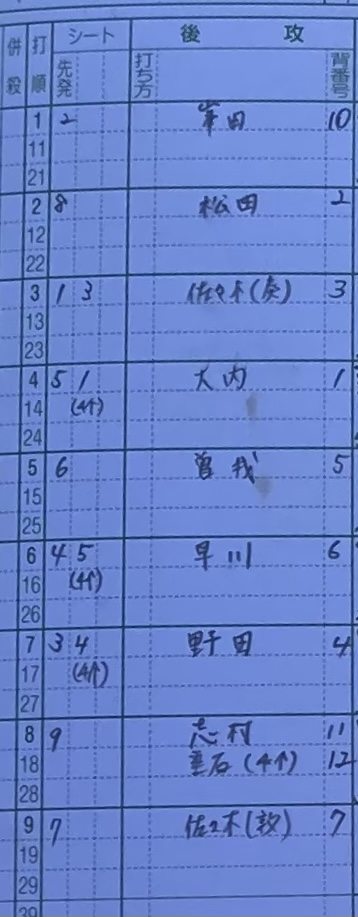 併殺 打順 シート 先発 後攻 打ち方 背番号
1 2 峯田 10
11
21
2 8 松田 2
12
22
3 1 3 佐々木(奏) 3
13
23
4 5 1 大内 1
14 (4个)
24
5 6 曽我 5
15
25
6 4 5 早川 6
16 (4个)
26
7 3 4 野田 4
17 (4个)
27
8 9 志村 11
18 垂石(4个) 12
28
9 7 佐々木(敦) 7
19
29
39